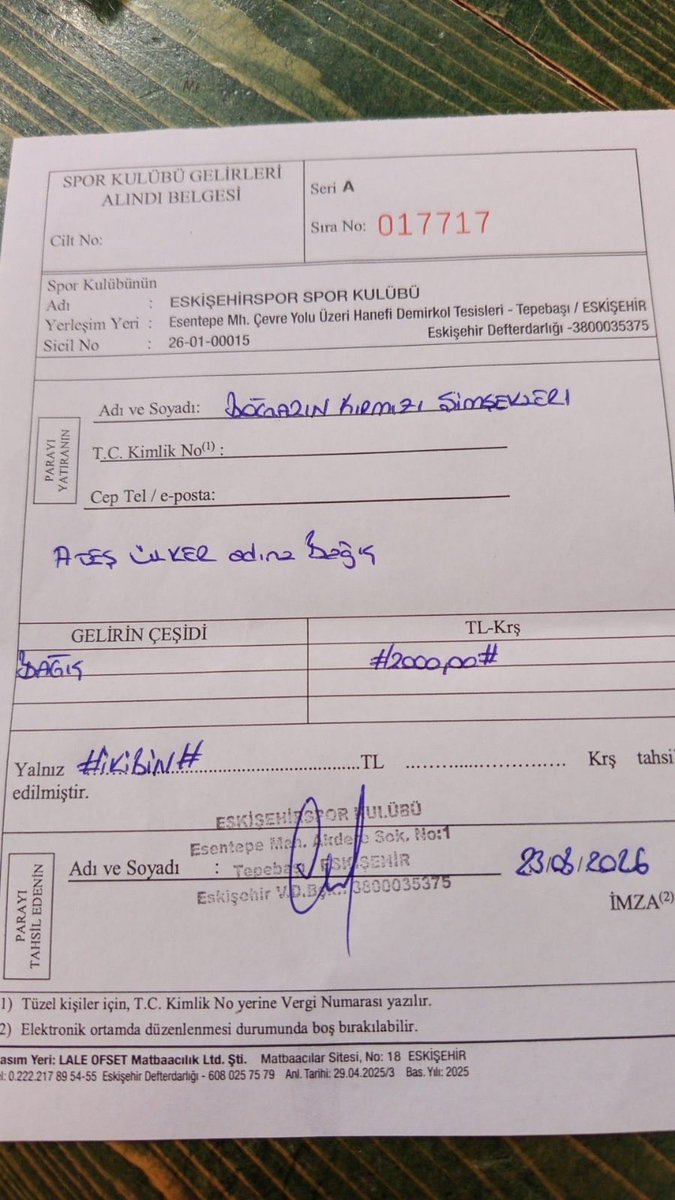 SPOR KULÜBÜ GELİRLERİ
ALINDI BELGESİ
Cilt No:
Seri A
Sıra No: 017717
Spor Kulübünün
Adı : ESKİŞEHİRSPOR SPOR KULÜBÜ
Yerleşim Yeri : Esentepe Mh. Çevre Yolu Üzeri Hanefi Demirkol Tesisleri - Tepebaşı / ESKİŞEHİR
Sicil No : 26-01-00015 Eskişehir Defterdarlığı -3800035375
PARAYI
YATIRANIN
Adı ve Soyadı: BOĞAZIN KIRMIZI ŞİMŞEKLERİ
T.C. Kimlik No(1) :
Cep Tel / e-posta:
ATEŞ ÜLKER adına Bağış
GELİRİN ÇEŞİDİ TL-Krş
BAĞIŞ #2000,00#
Yalnız #İKİBİN#.....................................TL ............................. Krş tahsil
edilmiştir.
ESKİŞEHİRSPOR KULÜBÜ
Esentepe Mah. Akdere Sok. No:1
Tepebaşı ESKİŞEHİR
Eskişehir V.D.Bşk.: 3800035375
PARAYI
TAHSİL EDENİN
Adı ve Soyadı :
23/08/2026
İMZA(2)
1) Tüzel kişiler için, T.C. Kimlik No yerine Vergi Numarası yazılır.
2) Elektronik ortamda düzenlenmesi durumunda boş bırakılabilir.
asım Yeri: LALE OFSET Matbaacılık Ltd. Şti. Matbaacılar Sitesi, No: 18 ESKİŞEHİR
el: 0.222.217 89 54-55 Eskişehir Defterdarlığı - 608 025 75 79 Anl. Tarihi: 29.04.2025/3 Bas. Yılı: 2025